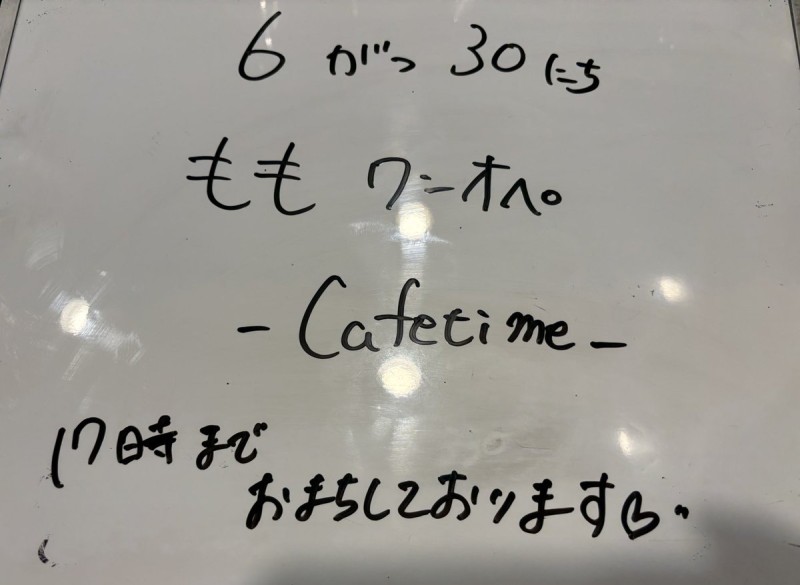 6がつ30にち
もも ワンオペ
-Cafetime-
17時まで
おまちしております♡